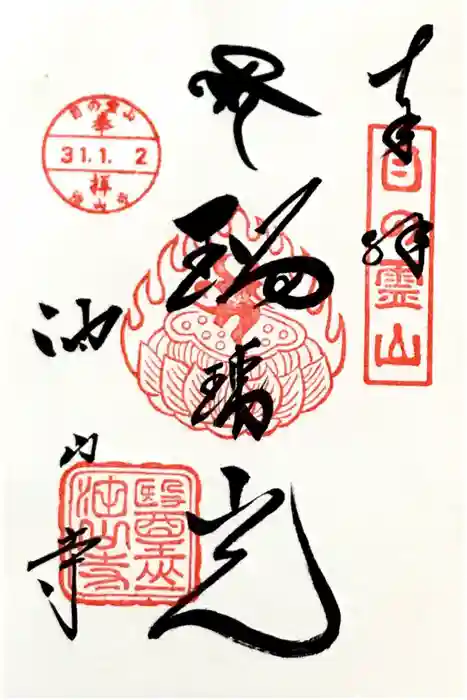 奉拝
目の霊山
瑠璃光
油山寺
醫王山
油山寺
目の霊山
奉
31.1.2
拝
油山寺